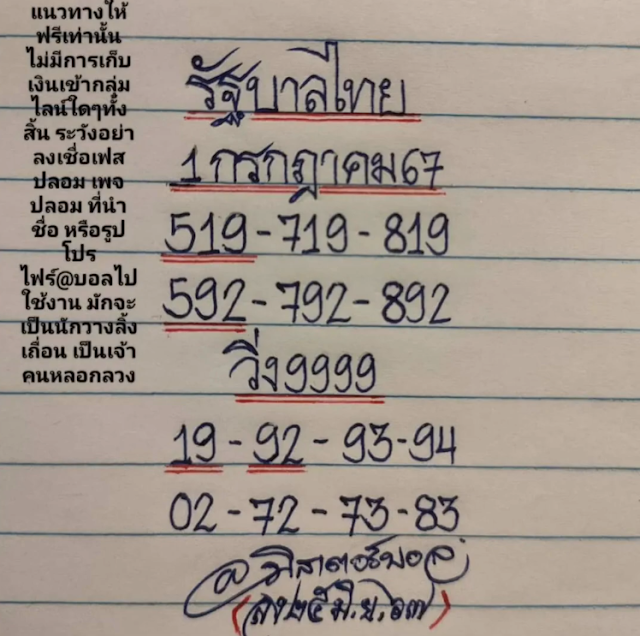 แนวทางให้
ฟรีเท่านั้น
ไม่มีการเก็บ
เงินเข้ากลุ่ม
ไลน์ใดๆทั้ง
สิ้น ระวังอย่า
ลงเชื่อเฟส
ปลอม เพจ
ปลอม ที่นำ
ชื่อ หรือรูป
โปร
ไฟร์@บอลไป
ใช้งาน มักจะ
เป็นนักวางลิ้ง
เถื่อน เป็นเจ้า
คนหลอกลวง
รัฐบาลไทย
1 กรกฎาคม67
519-719-819
592-792-892
วิ่ง9999
19-92-93-94
02-72-73-83
@มิสเตอร์บอล
(ลง๒๕มิ.ย.๖๗)